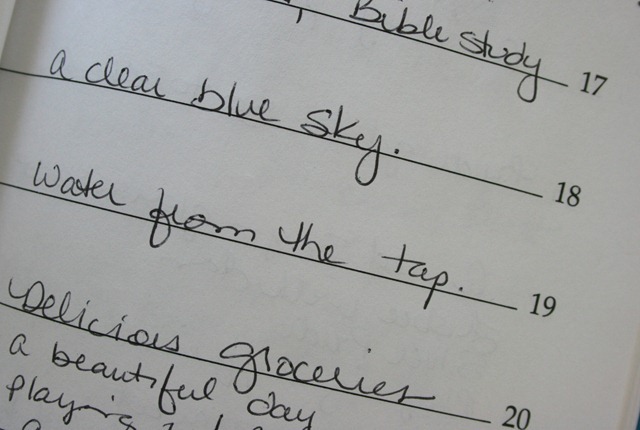 Bible study 17
a clear blue sky. 18
Water from the tap. 19
Delicious groceries 20
a beautiful day
playing